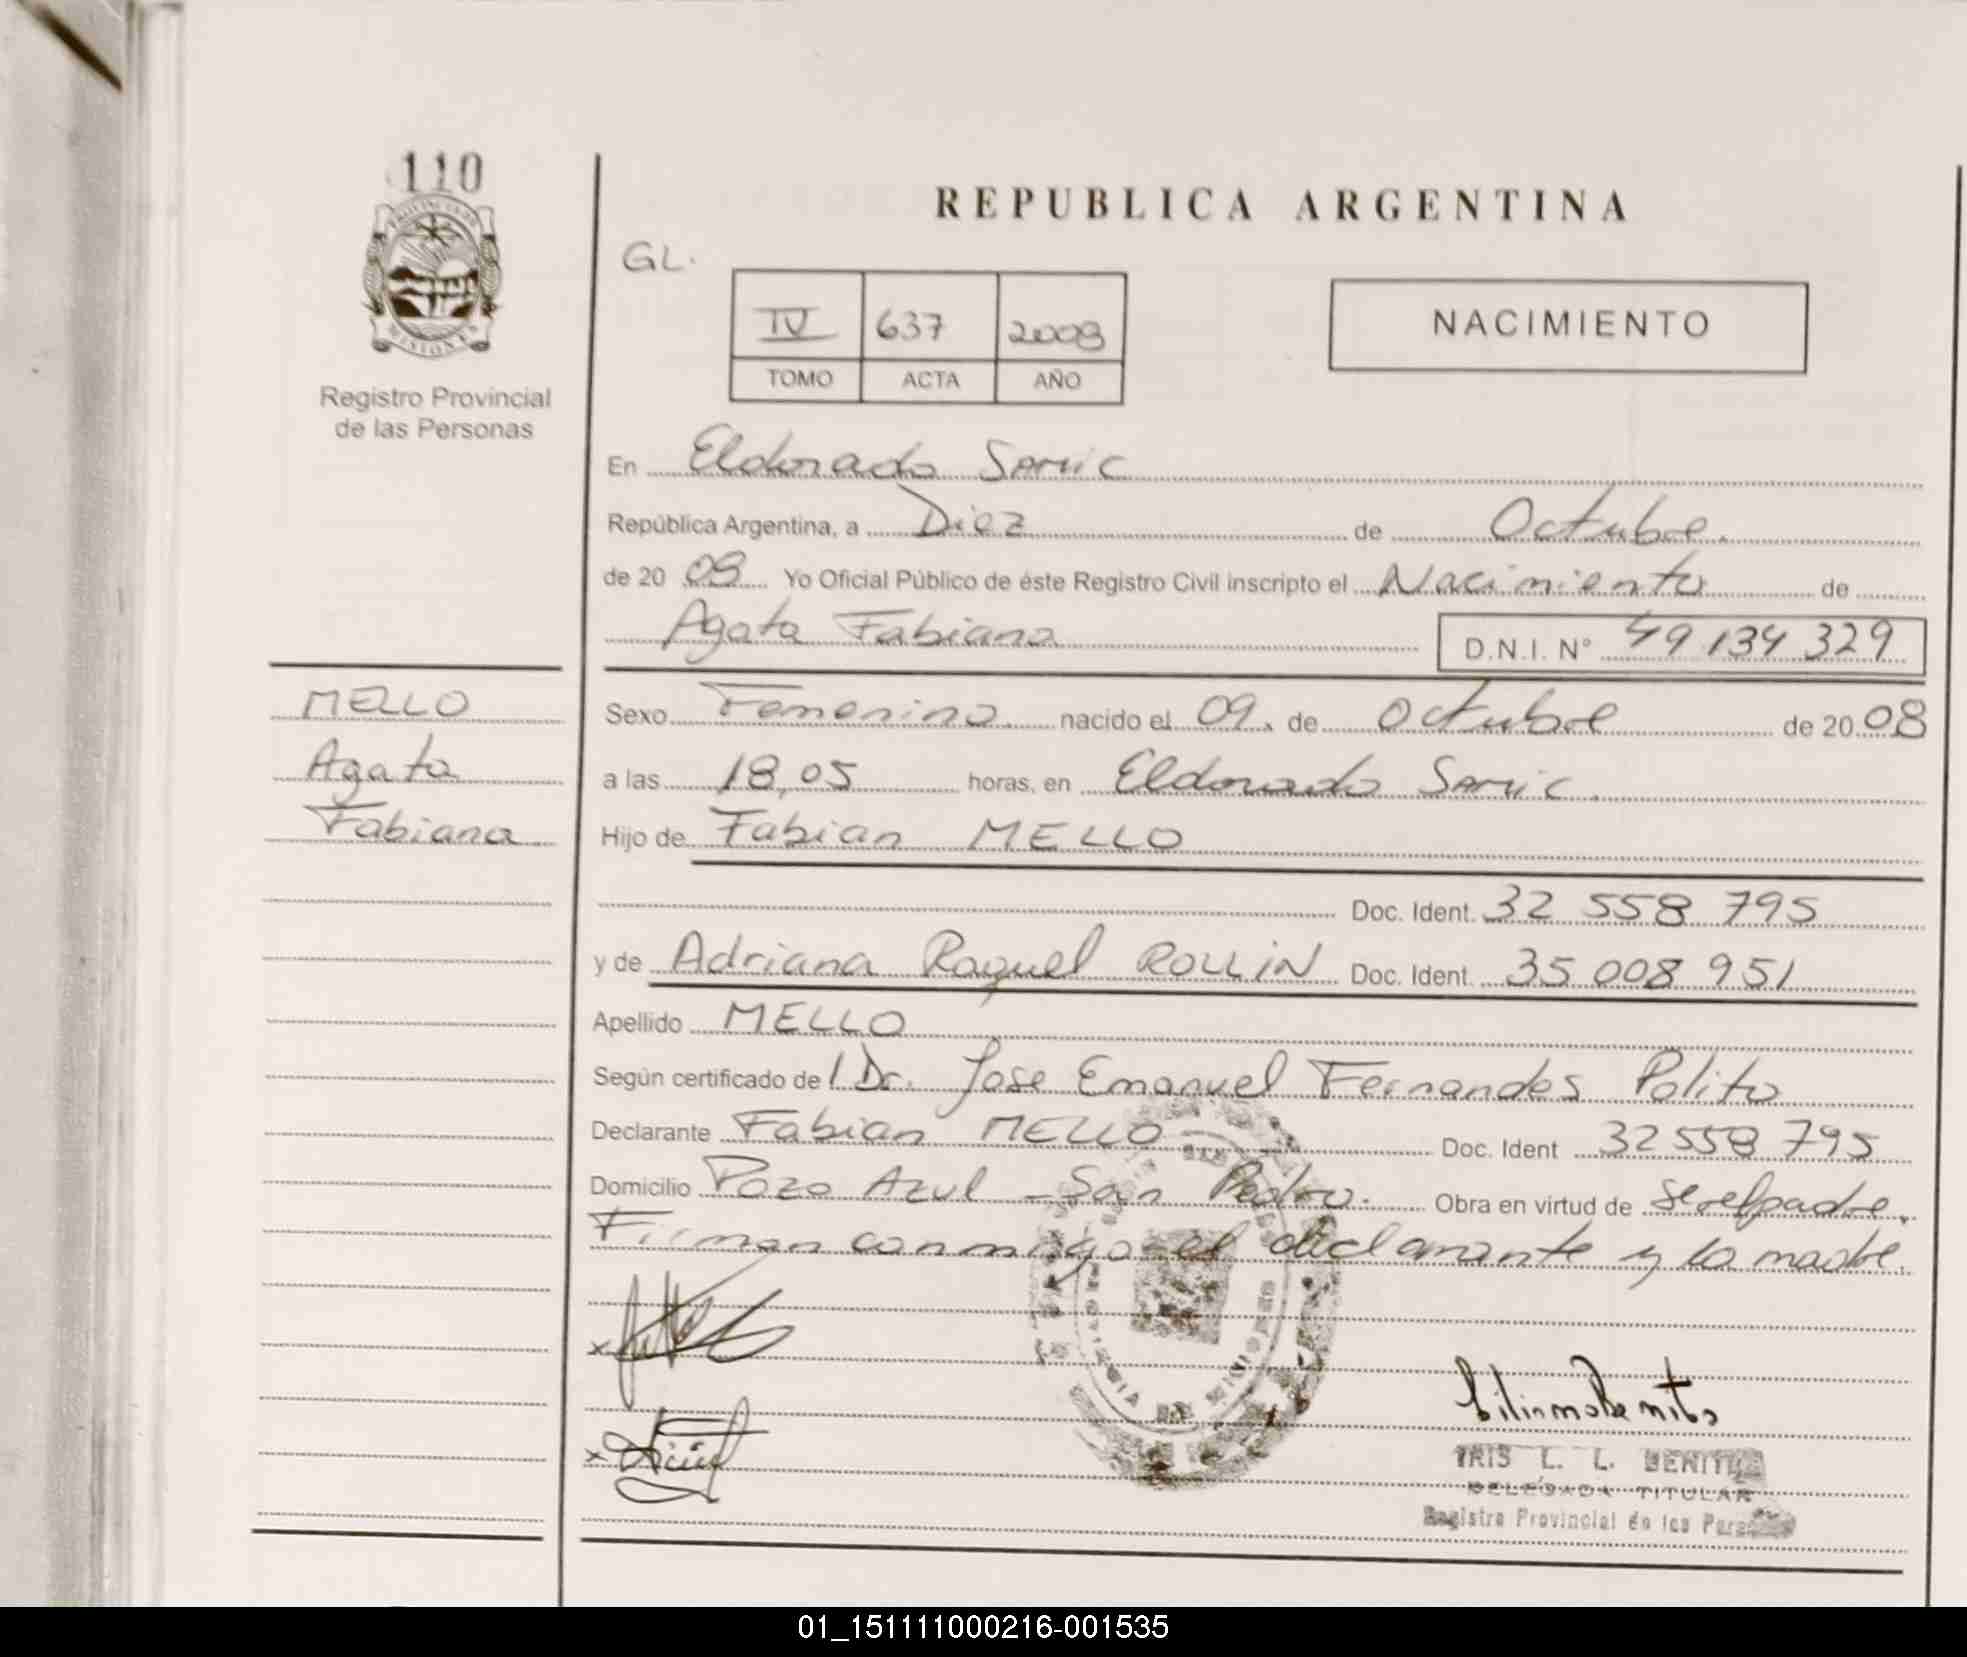 110
REPUBLICA ARGENTINA
GL.
IV 637 2008
TOMO ACTA AÑO
NACIMIENTO
Registro Provincial
de las Personas
En Eldorado Samic
República Argentina, a Diez de Octubre.
de 20 08 Yo Oficial Público de éste Registro Civil inscripto el Nacimiento de
Agata Fabiana D.N.I. Nº 49 134 329
MELLO
Agata
Fabiana
Sexo Femenino nacido el 09. de Octubre de 20 08
a las 18,05 horas, en Eldorado Samic.
Hijo de Fabian MELLO
Doc. Ident. 32 558 795
y de Adriana Raquel ROLLIN Doc. Ident. 35 008 951
Apellido MELLO
Según certificado de l Dr. Jose Emanuel Fernandes Polito
Declarante Fabian MELLO Doc. Ident 32 558 795
Domicilio Pozo Azul - San Pedro. Obra en virtud de ser el padre.
Firman conmigo el declarante y la madre.
x
x
IRIS L. L. BENITEZ
DELEGADA TITULAR
Registro Provincial de las Personas
01_151111000216-001535